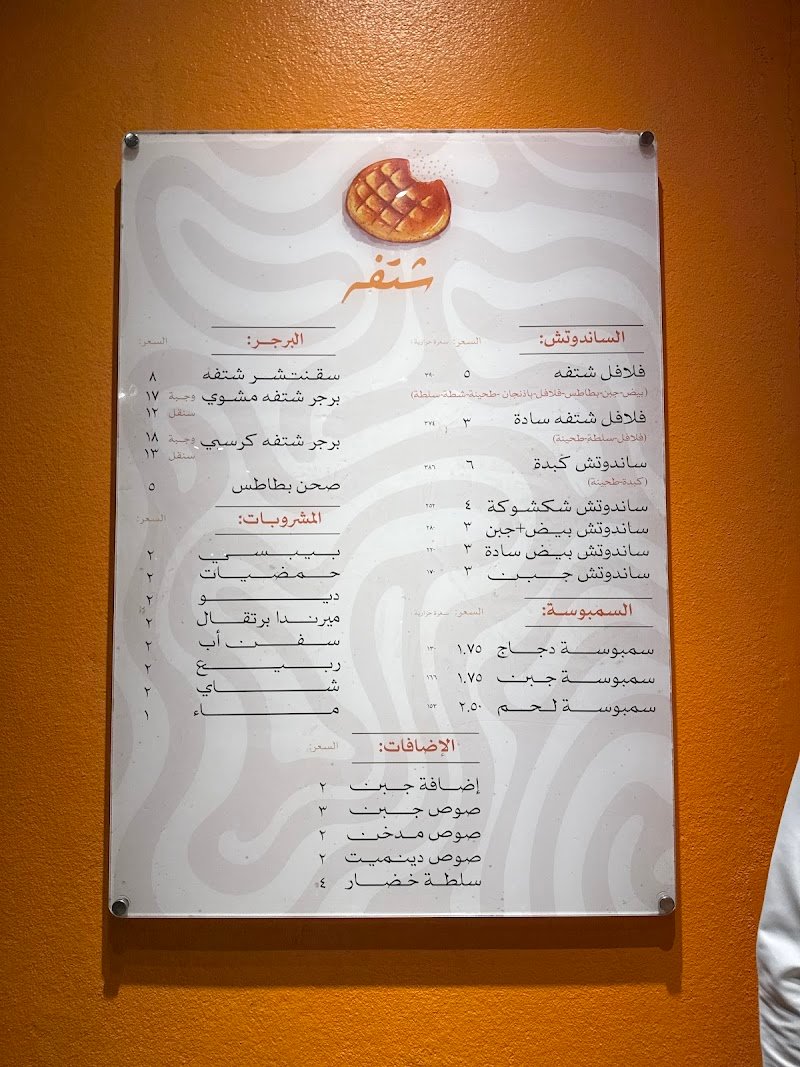 شتفه
الساندوتش: السعر: سعرة حرارية:
فلافل شتفه ٥ ٣٨٠
(بيض-جبن-بطاطس-فلافل-باذنجان -طحينة-شطة-سلطة)
فلافل شتفه سادة ٣ ٣٧٤
(فلافل-سلطة-طحينة)
ساندوتش كبدة ٦ ٣٨٦
(كبدة-طحينة)
ساندوتش شكشوكة ٤ ٢٥٢
ساندوتش بيض+جبن ٣ ٢٨٠
ساندوتش بيض سادة ٣ ٢٢٠
ساندوتش جبن ٣ ١٧٠
السمبوسة: السعر: سعرة حرارية:
سمبوسة دجاج ١.٧٥ ١٣٠
سمبوسة جبن ١.٧٥ ١٦٦
سمبوسة لحم ٢.٥٠ ١٥٢
البرجر: السعر:
سقنتشر شتفه ٨
برجر شتفه مشوي وجبة ١٧
سنقل ١٢
برجر شتفه كرسبي وجبة ١٨
سنقل ١٣
صحن بطاطس ٥
المشروبات: السعر:
بيبسي ٢
حمضيات ٢
ديو ٢
ميرندا برتقال ٢
سفن أب ٢
ربيع ٢
شاي ٢
ماء ١
الإضافات: السعر:
إضافة جبن ٢
صوص جبن ٣
صوص مدخن ٢
صوص دينميت ٢
سلطة خضار ٤